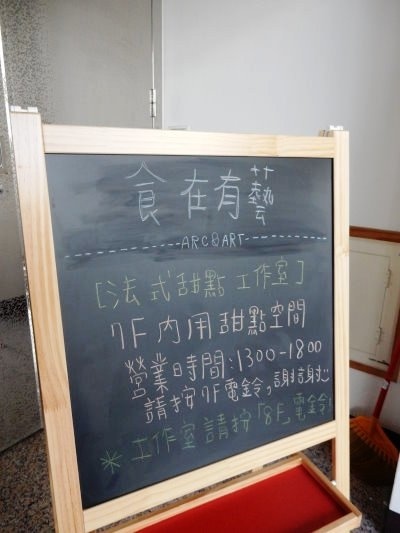 食在有藝
ARC&ART
[法式甜點工作室]
7F內用甜點空間
營業時間:1300-1800
請按7F電鈴,謝謝您
*工作室請按「8F」電鈴